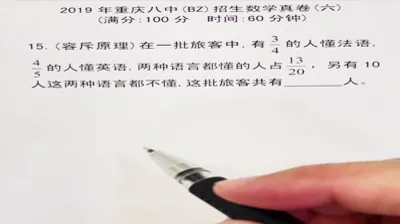 2019 年重庆八中(BZ)招生数学真卷(六)
(满分:100 分 时间:60 分钟)
15.(容斥原理)在一批旅客中,有3/4的人懂法语,
4/5的人懂英语,两种语言都懂的人占13/20,另有 10
人这两种语言都不懂,这批旅客共有______人。